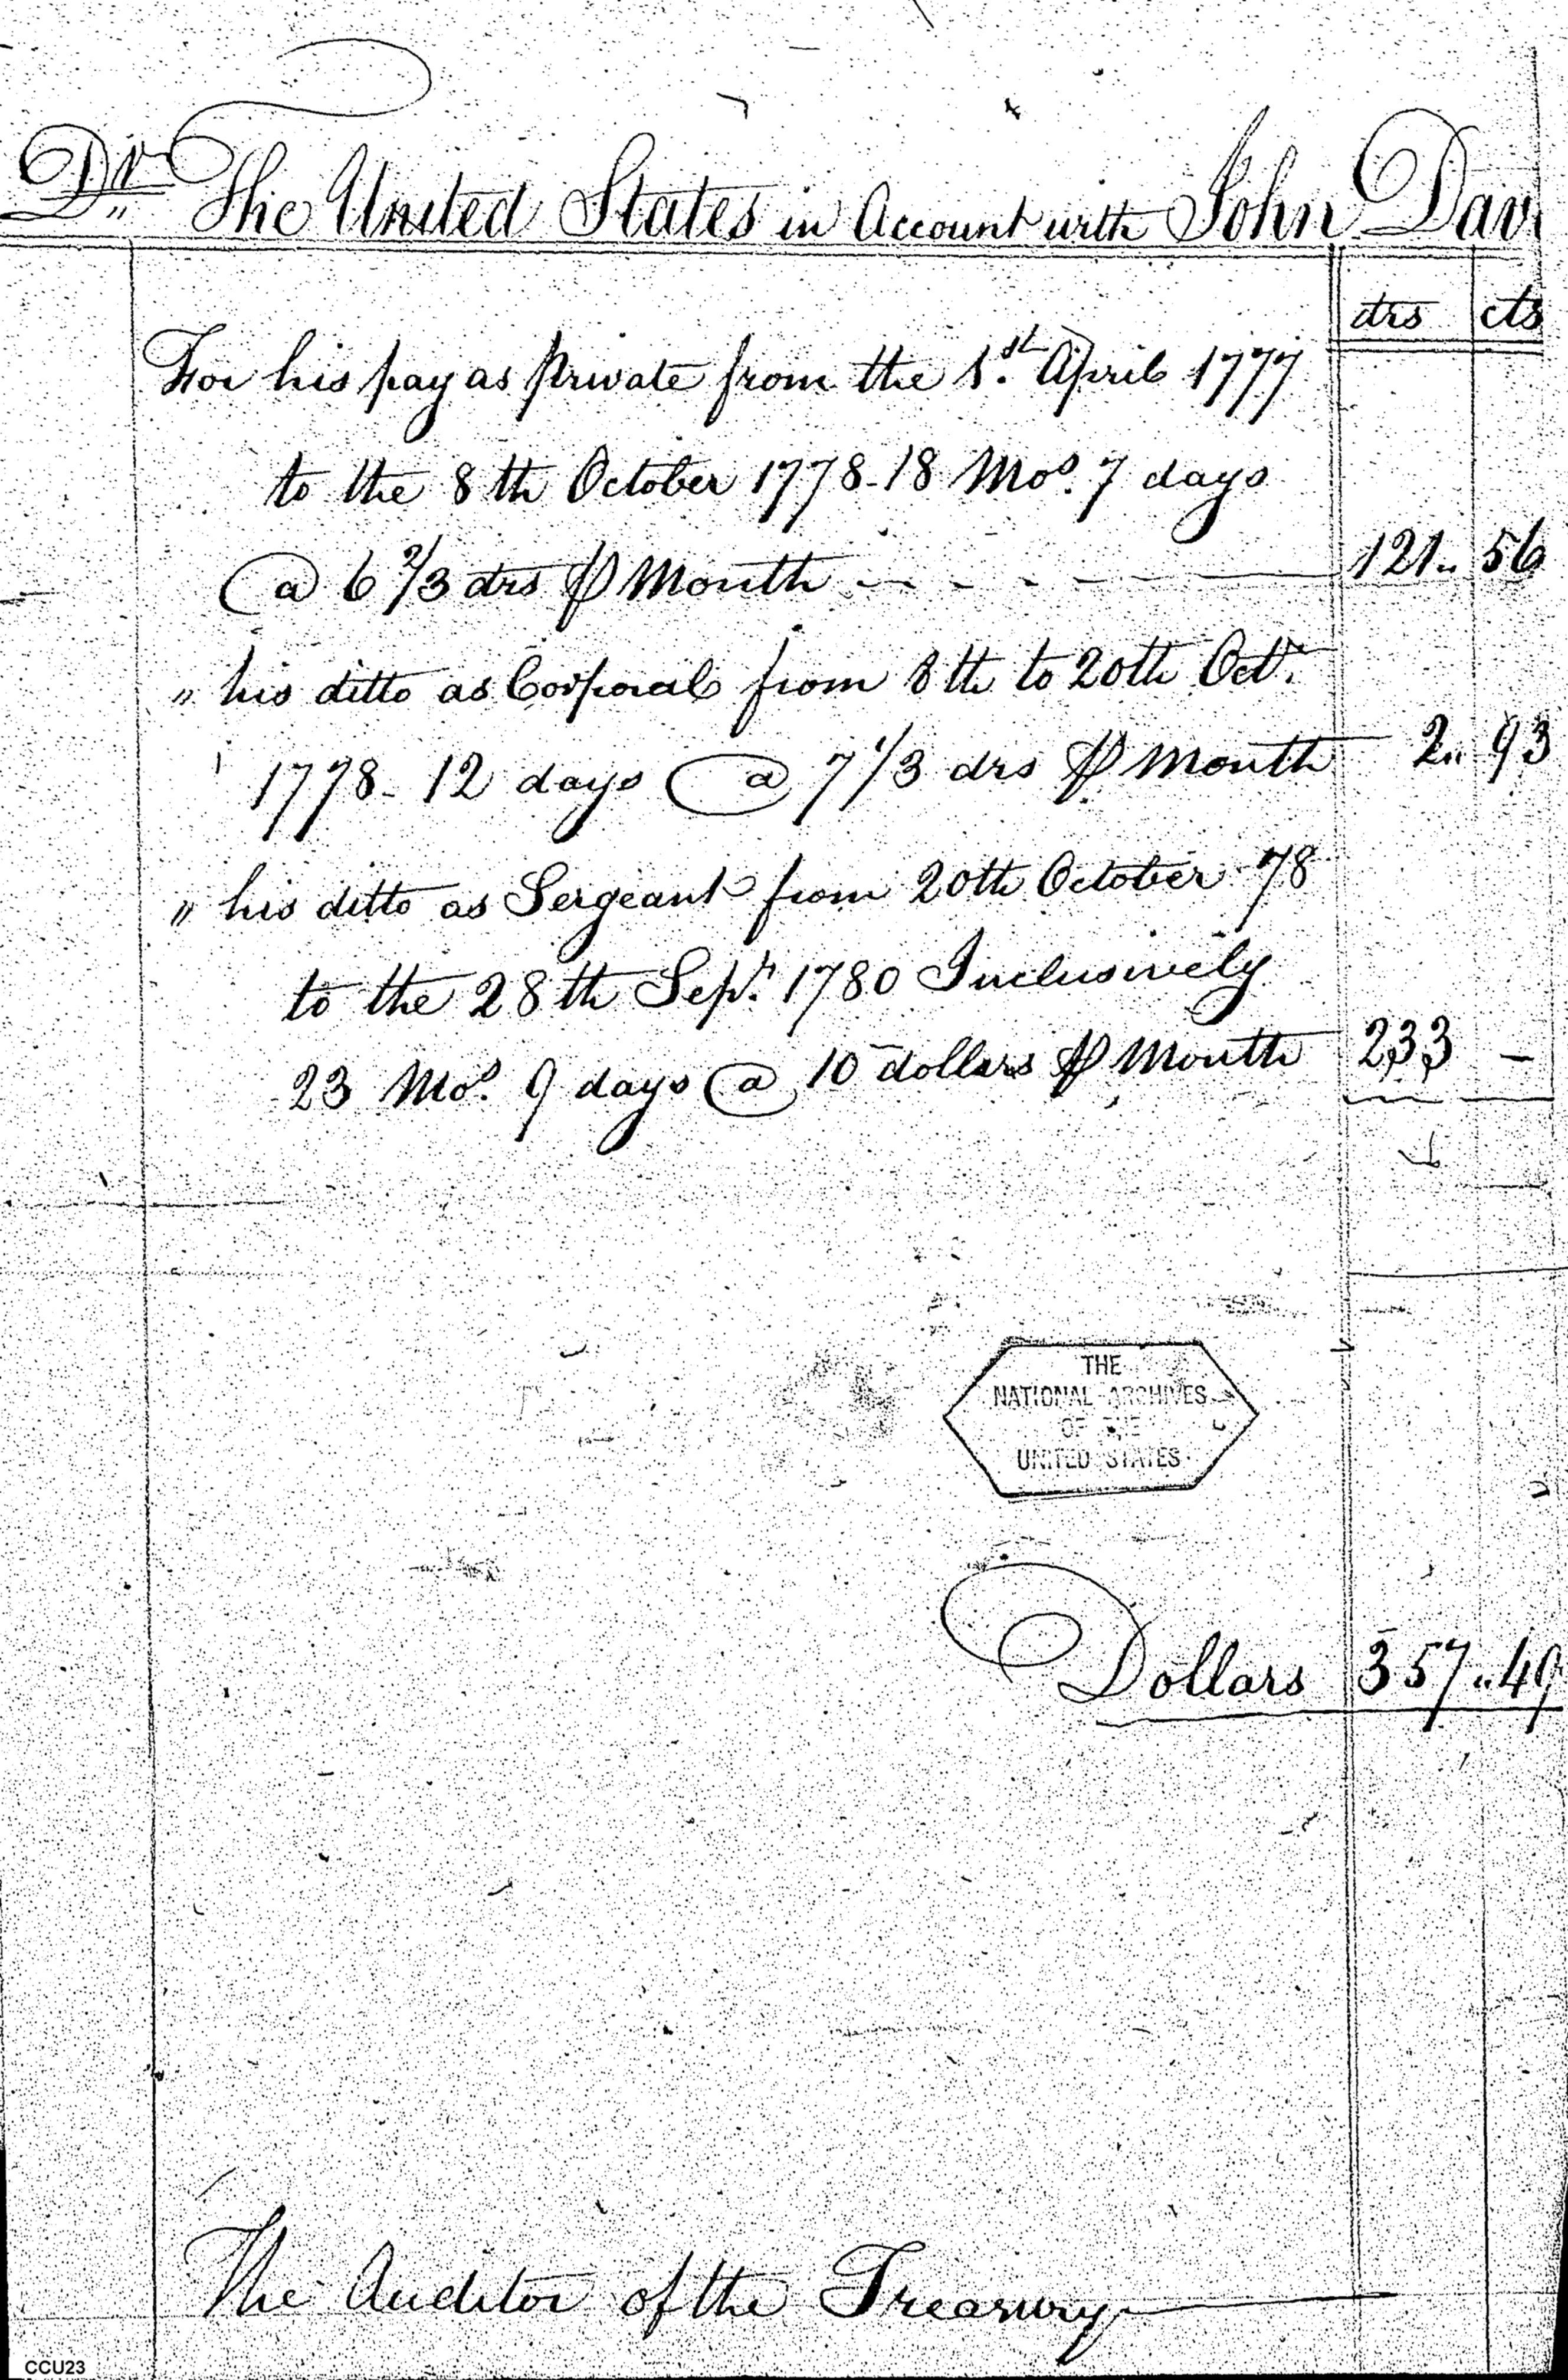 Dr. The United States in Account with John Dav
drs cts
For his pay as private from the 1.st April 1777
to the 8th October 1778-18 Mos. 7 days
@ 6 2/3 drs ⅌ Month - - - - - 121.. 56
" his ditto as Corporal from 8th to 20th Octr.
1778- 12 days @ 7 1/3 drs ⅌ Month 2.. 93
" his ditto as Sergeant from 20th October 78
to the 28th Sepr. 1780 Inclusively
23 Mos. 9 days @ 10 dollars ⅌ Month 233 –
THE
NATIONAL ARCHIVES
OF THE
UNITED STATES
Dollars 357..49
The Auditor of the Treasury
CCU23